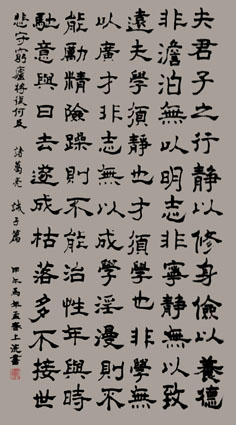 夫君子之行靜以修身儉以養德
非澹泊無以明志非寧靜無以致
遠夫學須靜也才須學也非學無
以廣才非志無以成學淫漫則不
能勵精險躁則不能治性年與時
馳意與日去遂成枯落多不接世
悲守窮廬將復何及 諸葛亮 誡子篇 甲午馬年孟春上浣書